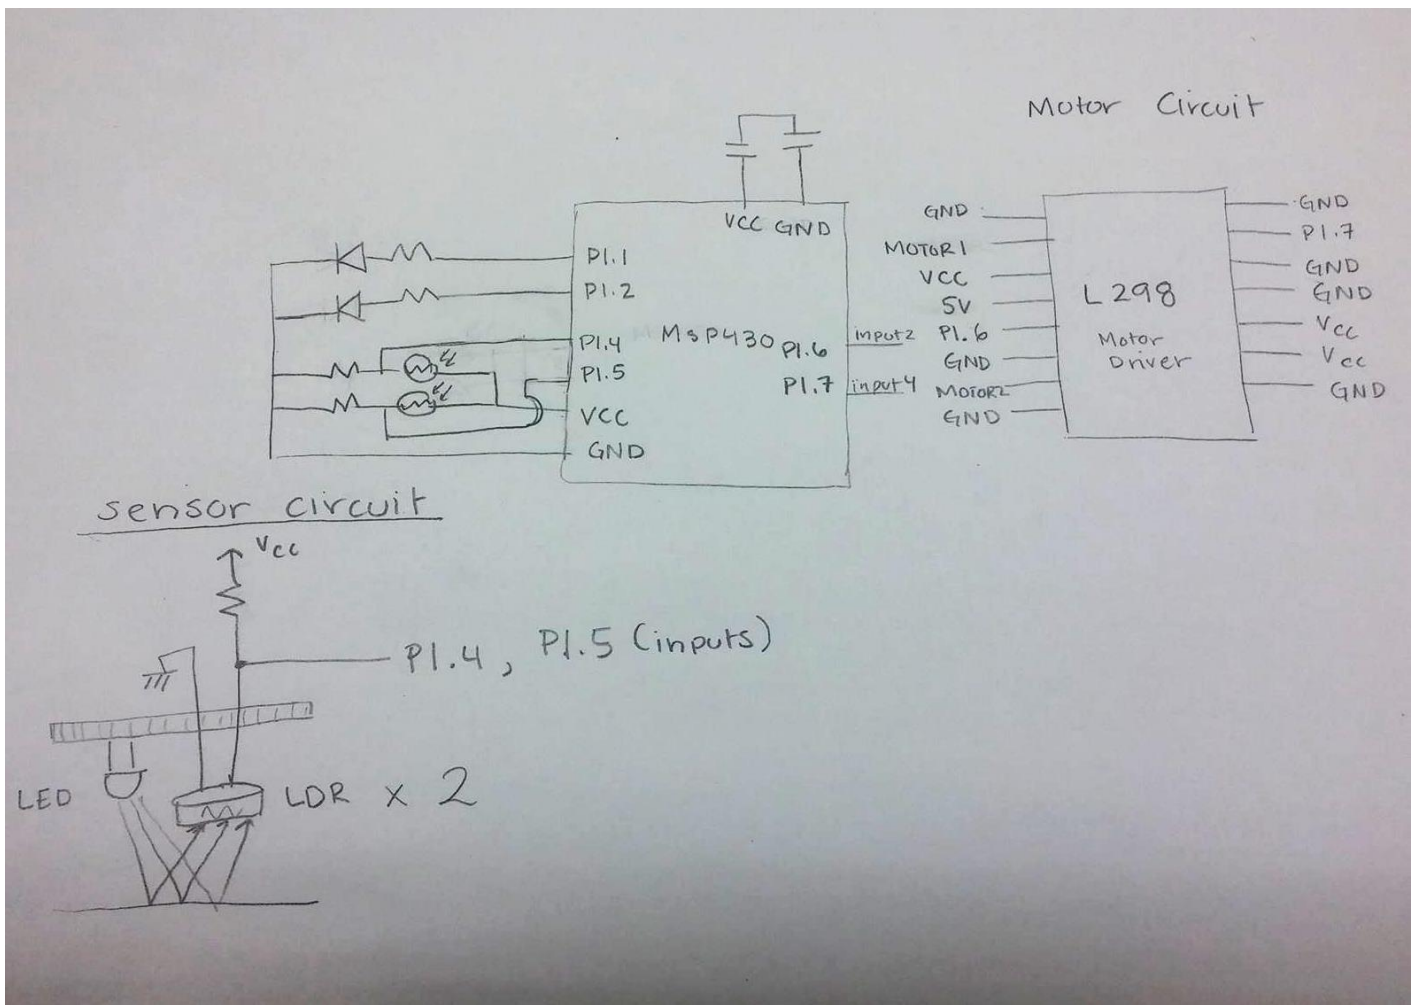 Motor Circuit
VCC GND
P1.1
P1.2
P1.4
P1.5
VCC
GND
MSP430
P1.6
P1.7
input2
input4
GND
MOTOR1
VCC
5V
P1.6
GND
MOTOR2
GND
L298
Motor
Driver
GND
P1.7
GND
GND
Vcc
Vcc
GND
sensor circuit
Vcc
P1.4, P1.5 (inputs)
LED
LDR x 2